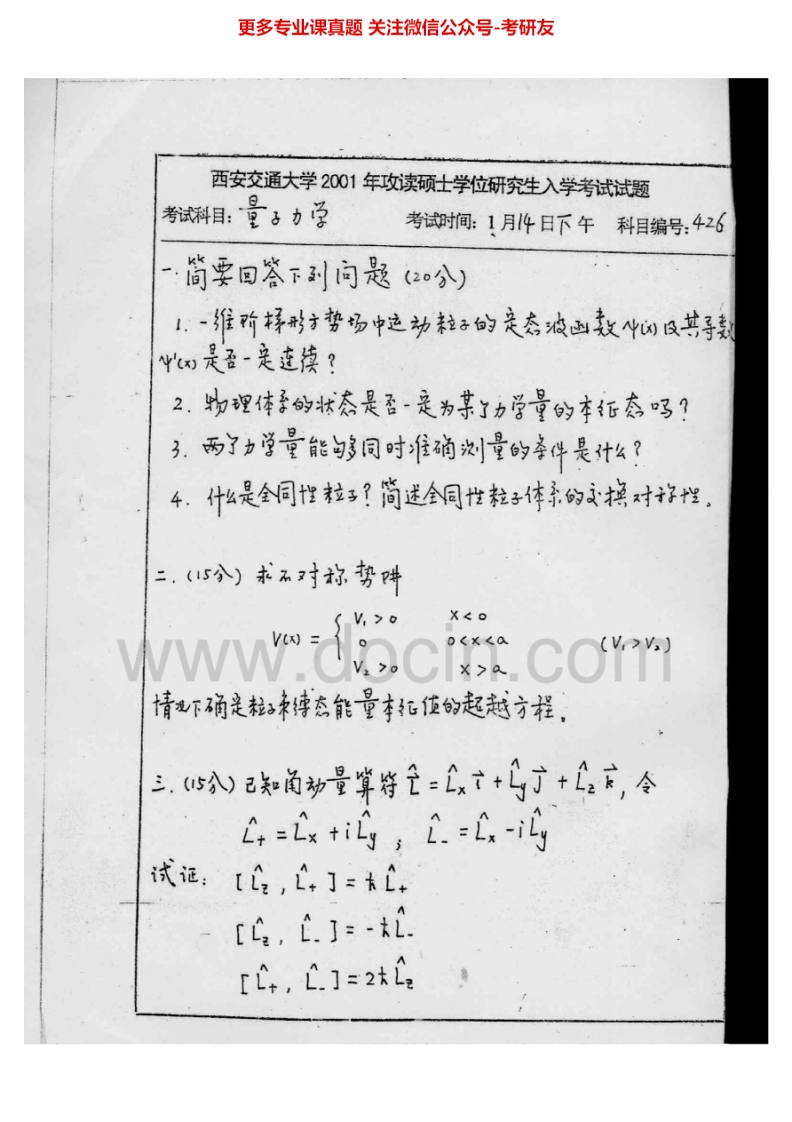 更多专业课真题 关注微信公众号-考研友
西安交通大学 2001 年攻读硕士学位研究生入学考试试题
考试科目: 量子力学 考试时间: 1月14日下午 科目编号: 426
一. 简要回答下列问题 (20分)
1. 一维阶梯形方势场中运动粒子的定态波函数ψ(x)及其导数
ψ'(x)是否一定连续?
2. 物理体系的状态是否一定为某个力学量的本征态吗?
3. 两个力学量能够同时准确测量的条件是什么?
4. 什么是全同性粒子? 简述全同性粒子体系的交换对称性。
二. (15分) 求不对称势阱
V(x) = { V₁ > 0 x < 0
0 0 < x < a (V₁ > V₂)
V₂ > 0 x > a
www.docin.com
情况下确定粒子束缚态能量本征值的超越方程。
三. (15分) 已知角动量算符 L̂ = L̂x i⃗ + L̂y j⃗ + L̂z k⃗, 令
L̂₊ = L̂x + iL̂y , L̂₋ = L̂x - iL̂y
试证: [L̂z, L̂₊] = ħL̂₊
[L̂z, L̂₋] = -ħL̂₋
[L̂₊, L̂₋] = 2ħL̂z